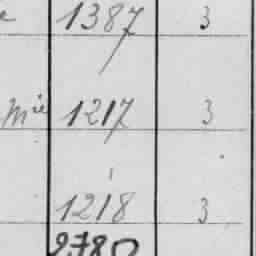 1387 3
Mie 1217 3
1218 3
2780